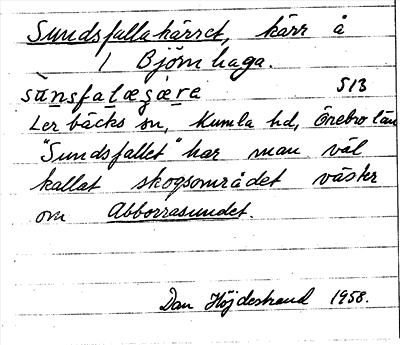 Sundsfallakärret, kärr å
1 Björnhaga.
sūnsfalæɟære 513
Lerbäcks sn, Kumla hd, Örebro län
"Sundsfallet" har man väl
kallat skogsområdet väster
om Abborrasundet.
Dan Höjdestrand 1958.